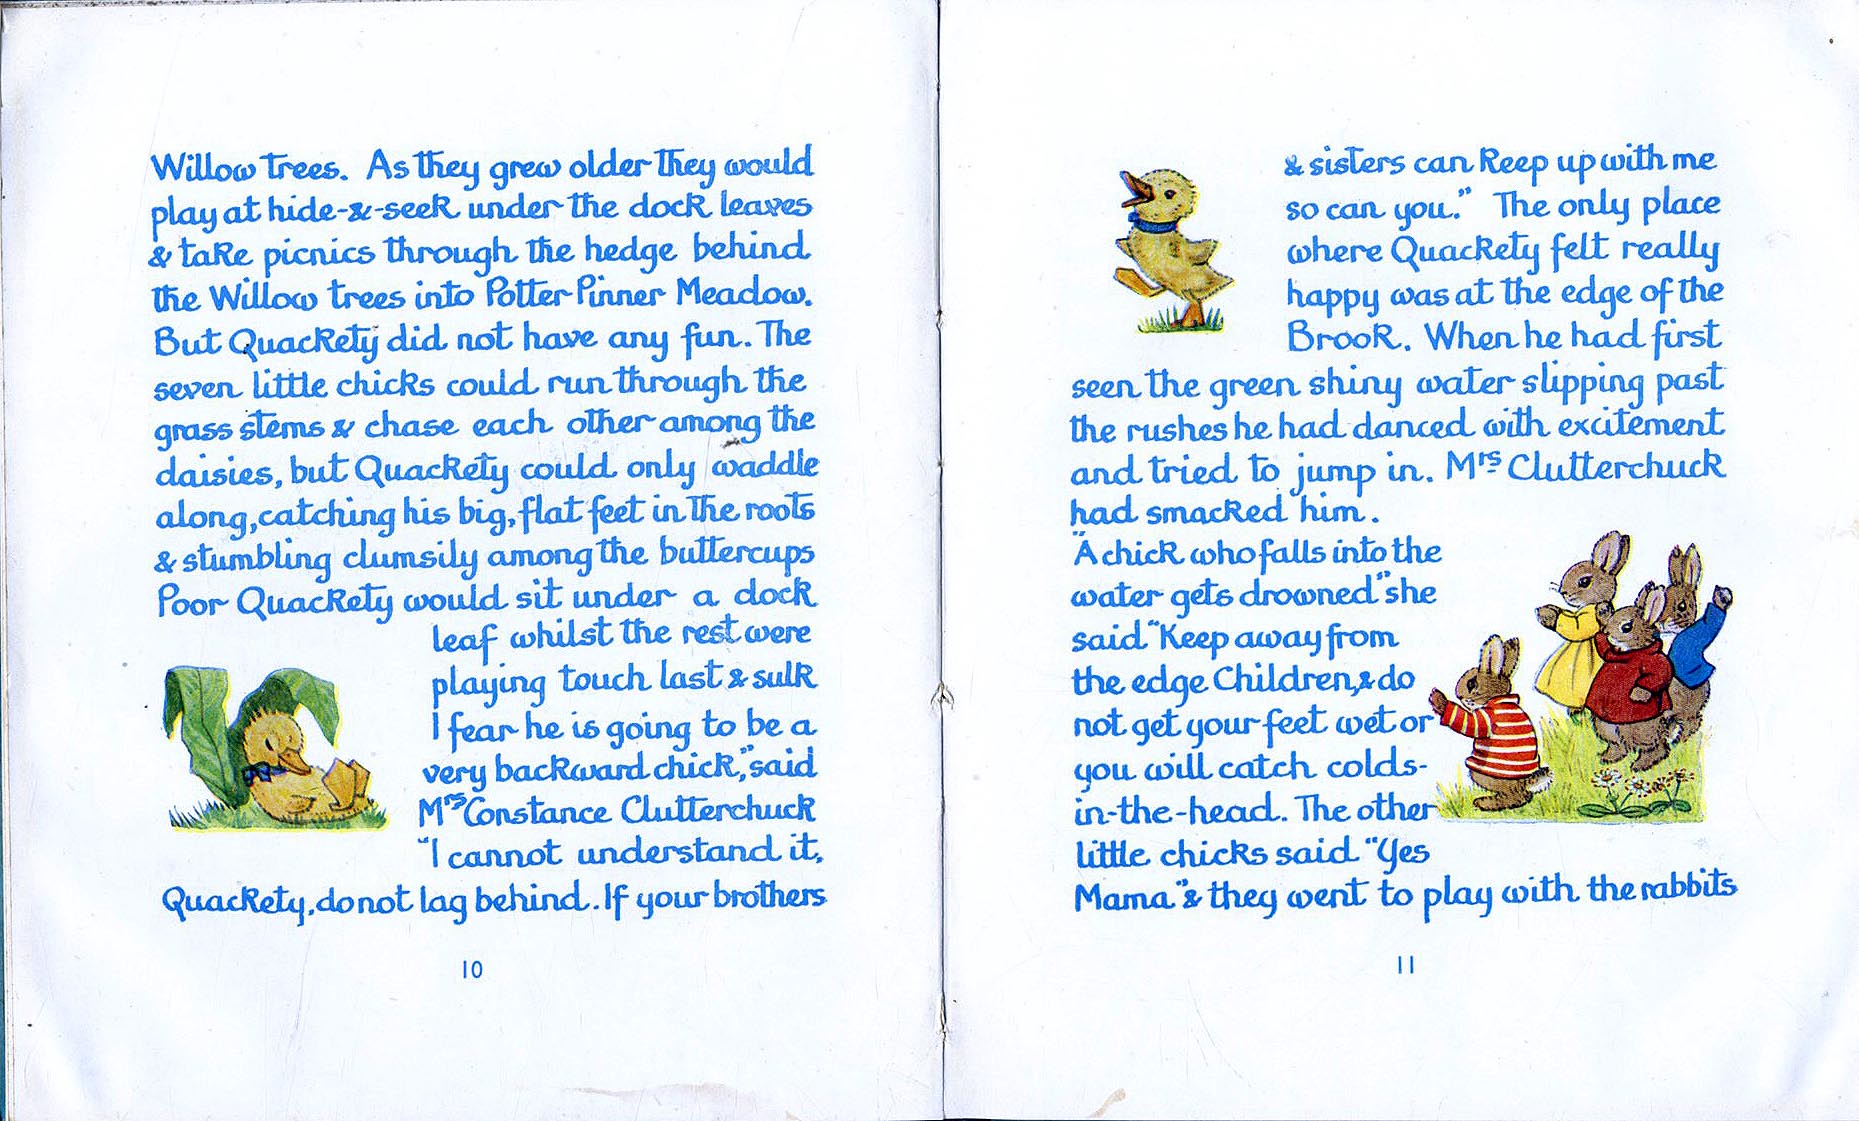 Willow trees. As they grew older they would
play at hide-&-seek under the dock leaves
& take picnics through the hedge behind
the Willow trees into Potter Pinner Meadow.
But Quackety did not have any fun. The
seven little chicks could run through the
grass stems & chase each other among the
daisies, but Quackety could only waddle
along, catching his big, flat feet in the roots
& stumbling clumsily among the buttercups
Poor Quackety would sit under a dock
leaf whilst the rest were
playing touch last & sulk
I fear he is going to be a
very backward chick," said
Mrs Constance Clutterchuck
"I cannot understand it,
Quackety, do not lag behind. If your brothers
10
& sisters can keep up with me
so can you." The only place
where Quackety felt really
happy was at the edge of the
Brook. When he had first
seen the green shiny water slipping past
the rushes he had danced with excitement
and tried to jump in. Mrs Clutterchuck
had smacked him.
"A chick who falls into the
water gets drowned" she
said "Keep away from
the edge Children, & do
not get your feet wet or
you will catch colds-
in-the-head. The other
little chicks said "Yes
Mama" & they went to play with the rabbits
11